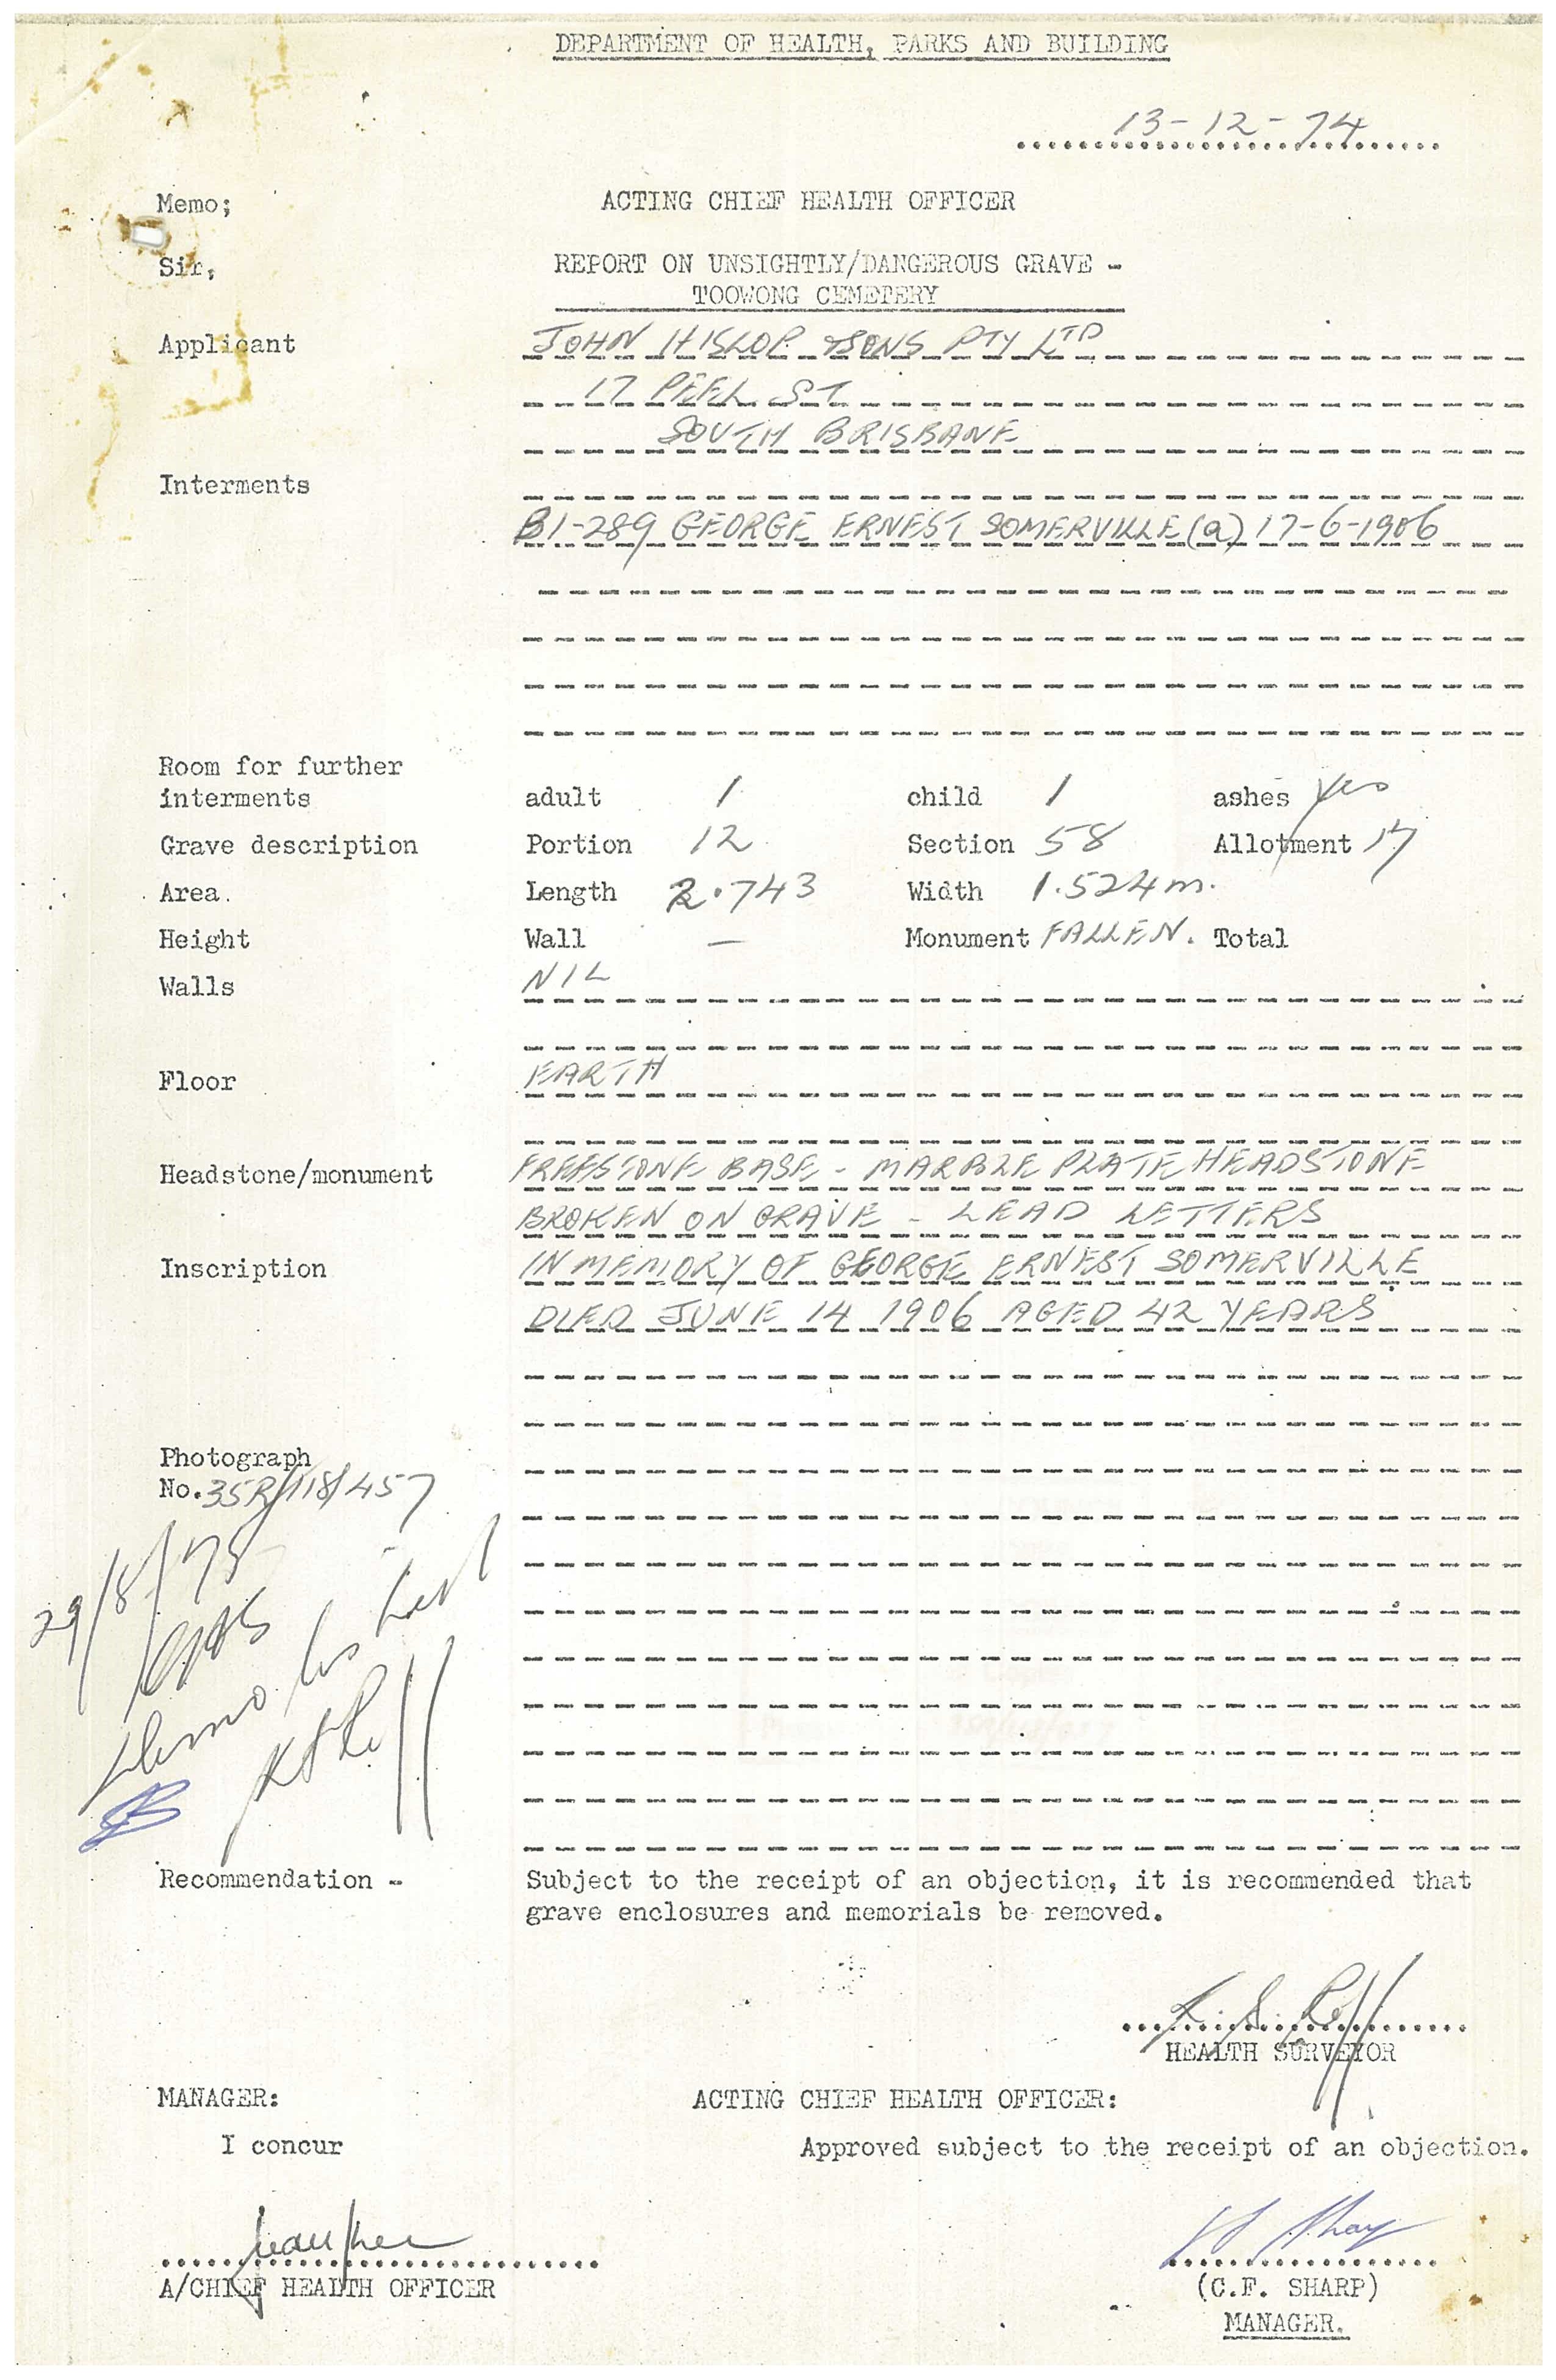 DEPARTMENT OF HEALTH, PARKS AND BUILDING
13-12-74
Memo; ACTING CHIEF HEALTH OFFICER
Sir, REPORT ON UNSIGHTLY/DANGEROUS GRAVE -
TOOWONG CEMETERY
Applicant JOHN HISLOP & SONS PTY LTD
17 PEEL ST
SOUTH BRISBANE
Interments
B1-289 GEORGE ERNEST SOMERVILLE (a) 17-6-1906
Room for further
interments adult 1 child 1 ashes Yes
Grave description Portion 12 Section 58 Allotment 17
Area. Length 2.743 Width 1.524m.
Height Wall — Monument FALLEN. Total
Walls NIL
Floor EARTH
Headstone/monument FREESTONE BASE - MARBLE PLATE HEADSTONE
BROKEN ON GRAVE - LEAD LETTERS
Inscription IN MEMORY OF GEORGE ERNEST SOMERVILLE
DIED JUNE 14 1906 AGED 42 YEARS
Photograph
No. 35R/118/457
29/8/75
Recommendation - Subject to the receipt of an objection, it is recommended that
grave enclosures and memorials be removed.
HEALTH SURVEYOR
MANAGER: ACTING CHIEF HEALTH OFFICER:
I concur Approved subject to the receipt of an objection.
A/CHIEF HEALTH OFFICER (C.F. SHARP)
MANAGER.